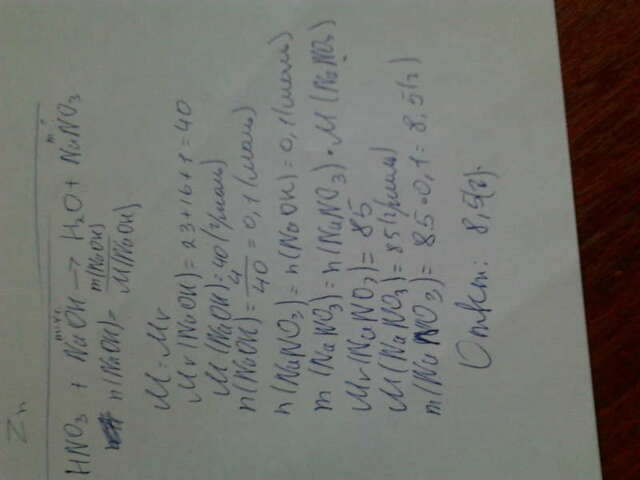 Zn
HNO₃ + NaOH → H₂O + NaNO₃
n(NaOH) = m(NaOH) / M(NaOH)
M = Mr
Mr(NaOH) = 23+16+1 = 40
M(NaOH) = 40 (г/моль)
n(NaOH) = 4/40 = 0,1 (моль)
n(NaNO₃) = n(NaOH) = 0,1 (моль)
m(NaNO₃) = n(NaNO₃) · M(NaNO₃)
Mr(NaNO₃) = 85
M(NaNO₃) = 85 (г/моль)
m(NaNO₃) = 85 · 0,1 = 8,5 (г)
Ответ: 8,5(г).